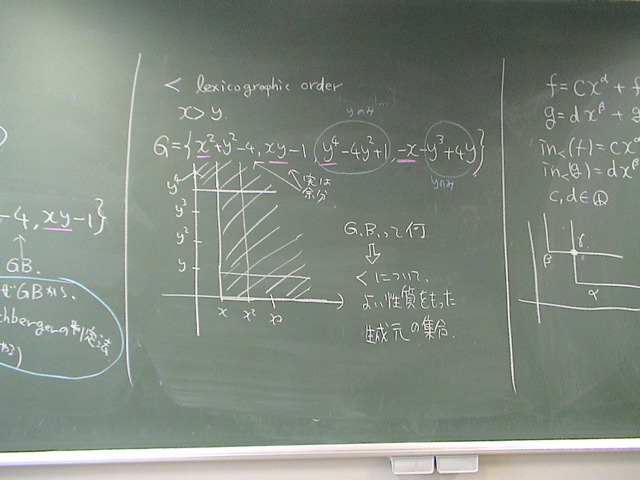 -4, xy-1}
GB.
< lexicographic order
x>y.
yのみ
G={x²+y²-4, xy-1, y⁴-4y²+1, -x-y³+4y}
yのみ
実は
余分
y⁴
y³
y²
y
x x² x³
G.B.って何
⇓
<について、
よい性質をもった
生成元の集合.
f=cx^α+f
g=dx^β+g
in<(f)=cx^α
in<(g)=dx^β
β
γ
α